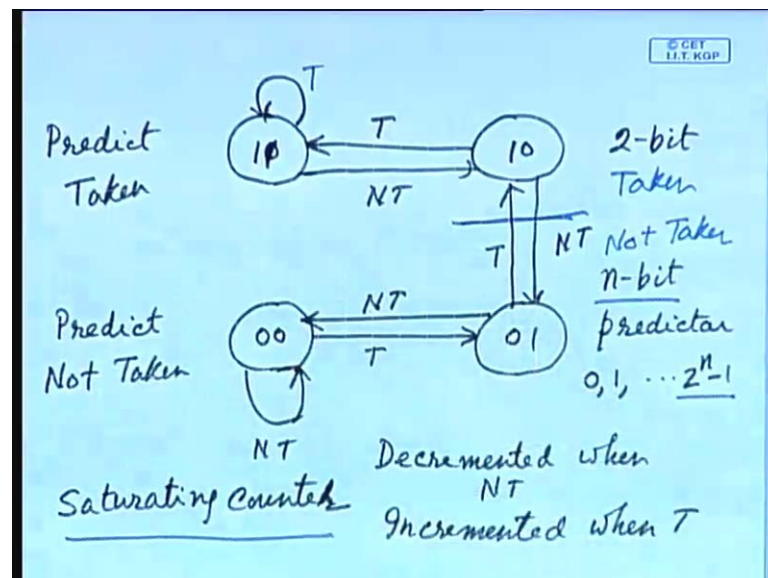 © CET
I.I.T. KGP
T
Predict
Taken
11
T
NT
10
2-bit
Taken
T
NT
Not Taken
n-bit
predictor
Predict
Not Taken
00
NT
T
01
0, 1, ... 2^n-1
NT
Saturating Counter
Decremented when
NT
Incremented when T